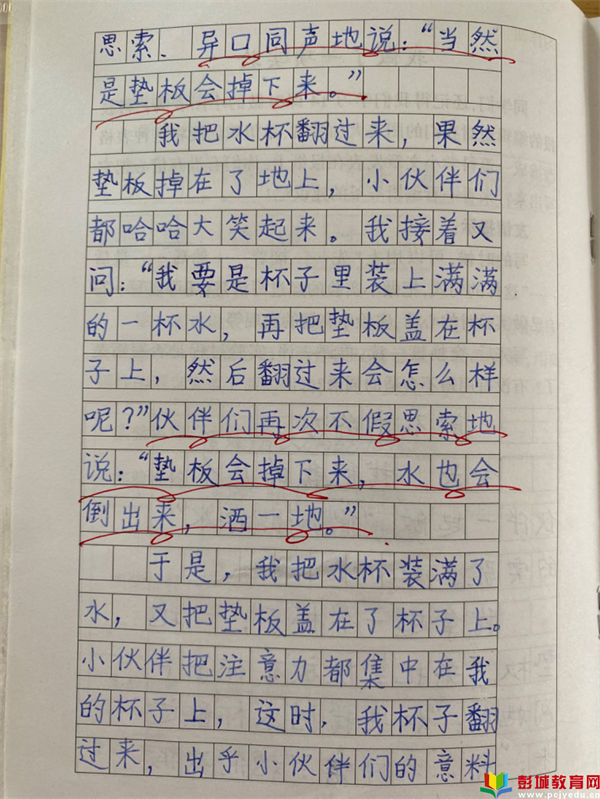 思索、异口同声地说：“当然
是垫板会掉下来。”
我把水杯翻过来，果然
垫板掉在了地上，小伙伴们
都哈哈大笑起来。我接着又
问：“我要是杯子里装上满满
的一杯水，再把垫板盖在杯
子上，然后翻过来会怎么样
呢？”伙伴们再次不假思索地
说：“垫板会掉下来，水也会
倒出来，洒一地。”
于是，我把水杯装满了
水，又把垫板盖在了杯子上。
小伙伴把注意力都集中在我
的杯子上，这时，我杯子翻
过来，出乎小伙伴们的意料
彭城教育网
www.pcjyedu.cn